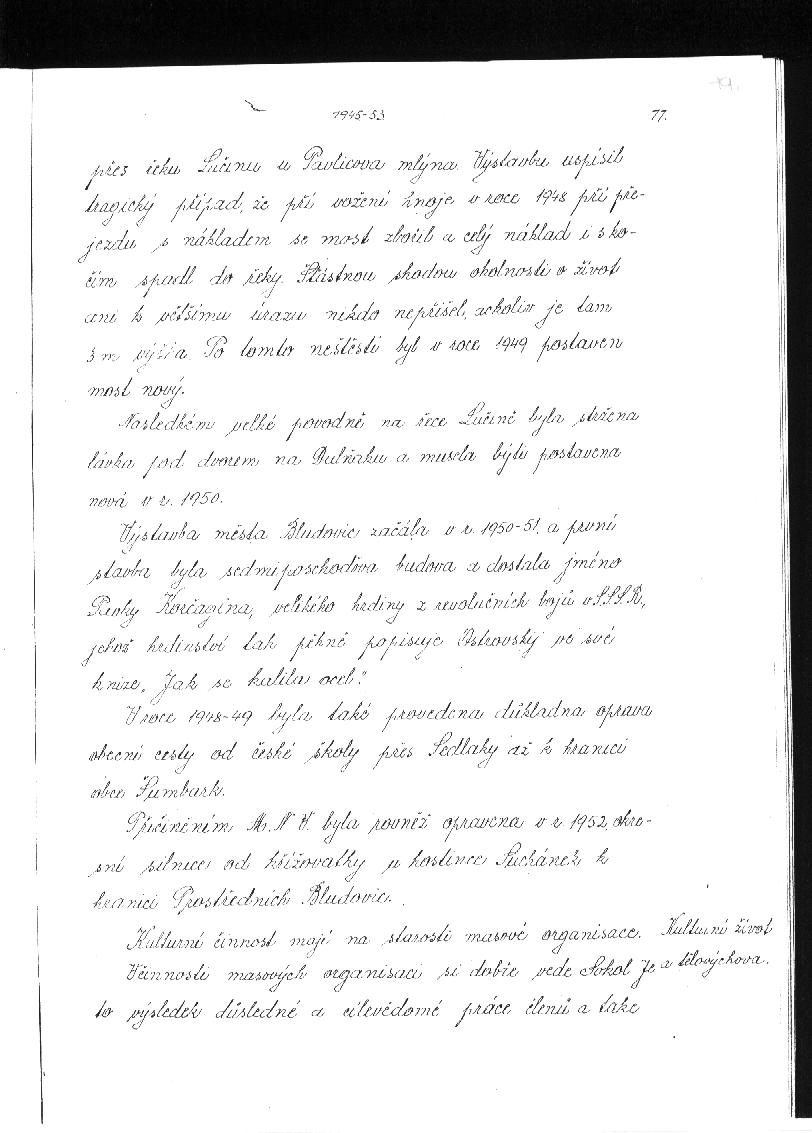 1945-53
77.
přes řeku Lučinu u Pavlicova mlýna. Výstavbu uspíšil
tragický případ, že při vožení hnoje v roce 1948 při pře-
jezdu s nákladem se most zbořil a celý náklad i s ko-
čím spadl do řeky. Šťástnou shodou okolností o život
ani k většímu úrazu nikdo nepřišel, ačkoliv je tam
3 m výška. Po tomto neštěstí byl v roce 1949 postaven
most nový.
Následkém velké povodně na řece Lučině byla stržena
lávka pod dvorem na Dulňaku a musela býti postavena
nová v r. 1950.
Výstavba města Bludovic začála v r. 1950-51. a první
stavba byla sedmiposchoďova budova a dostala jméno
Pavky Korčagina, velikého hrdiny z revolučních bojů v S.S.S.R.,
jehož hrdinství tak pěkně popisuje Ostrovský ve své
knize „Jak se kalila ocel."
V roce 1948-49 byla také provedena důkladna oprava
obecní cesty od české školy přes Sedlaky až k hranici
obce Šumbark.
Přičiněním M. N. V. byla rovněž opravena v r. 1952 okre-
sní silnice od křížovatky u hostince Suchánek k
hranici Prostředních Bludovic.
Kulturní činnost mají na starosti masové organisace.
Kulturní život
a tělovýchova.
V činnosti masových organisací si dobře vede Sokol. Je
to výsledek důsledné a cílevědomé práce členů a take